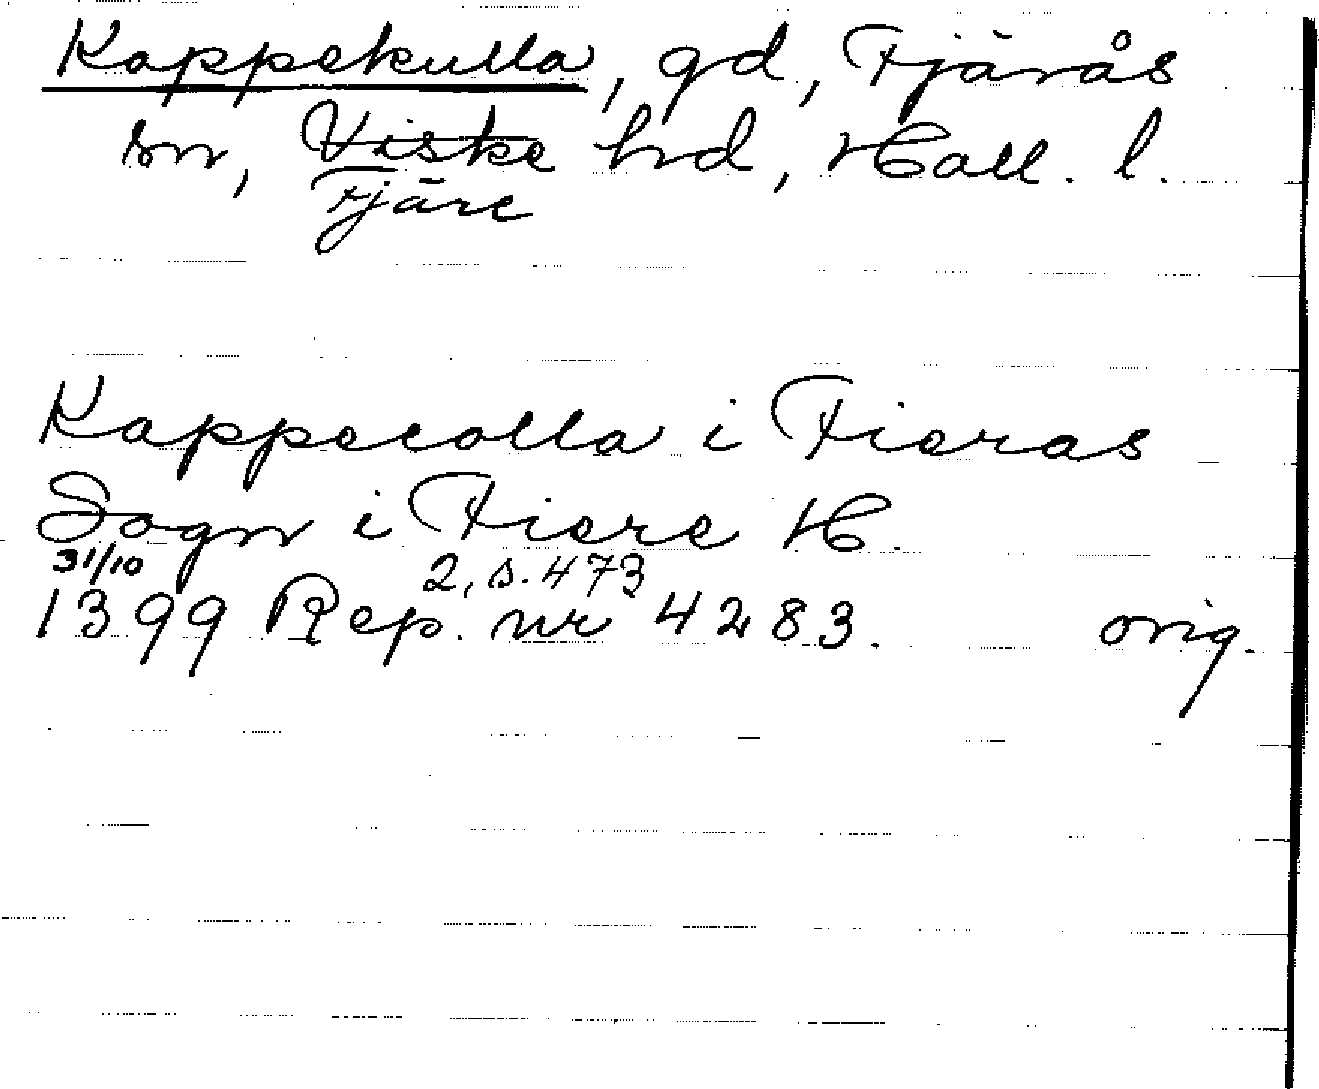 Kappekulla, gd, Fjärås
sn, Viske hd, Hall. l.
Fjäre
Kappecolla i Fieras
Sogn i Fiere H.
31/10 2, s. 473
1399 Rep. nr 4283. orig.